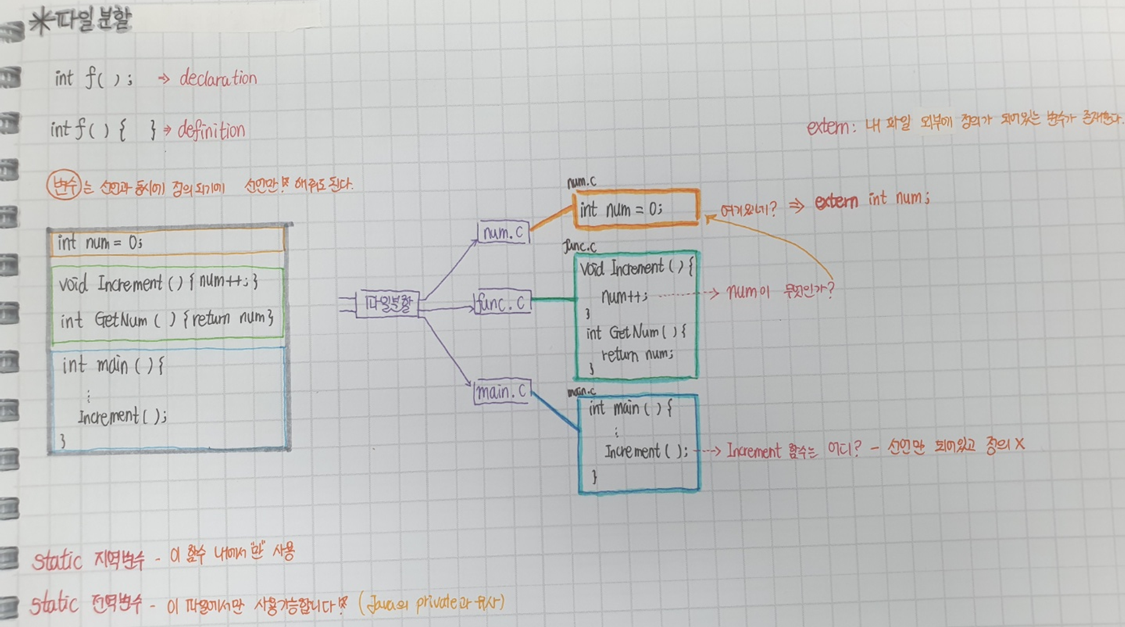 *파일분할
int f( ); → declaration
int f( ) { } → definition
extern: 내 파일 외부에 정의가 되어있는 변수가 존재한다.
변수는 선언과 동시에 정의 되기에 선언만! 해줘도 된다.
int num = 0;
void Increment ( ) { num++; }
int GetNum ( ) { return num}
int main ( ) {
⋮
Increment ( );
}
파일분할
num.c
func.c
main.c
num.c
int num = 0;
여기있네? ⇒ extern int num;
func.c
void Increment ( ) {
num++; → num이 무엇인가?
}
int GetNum ( ) {
return num;
}
main.c
int main ( ) {
⋮
Increment ( ); → Increment 함수는 어디? - 선언만 되어있고 정의 X
}
static 지역변수 - 이 함수 내에서"만" 사용
static 전역변수 - 이 파일에서만 사용가능합니다! (Java의 private과 유사)